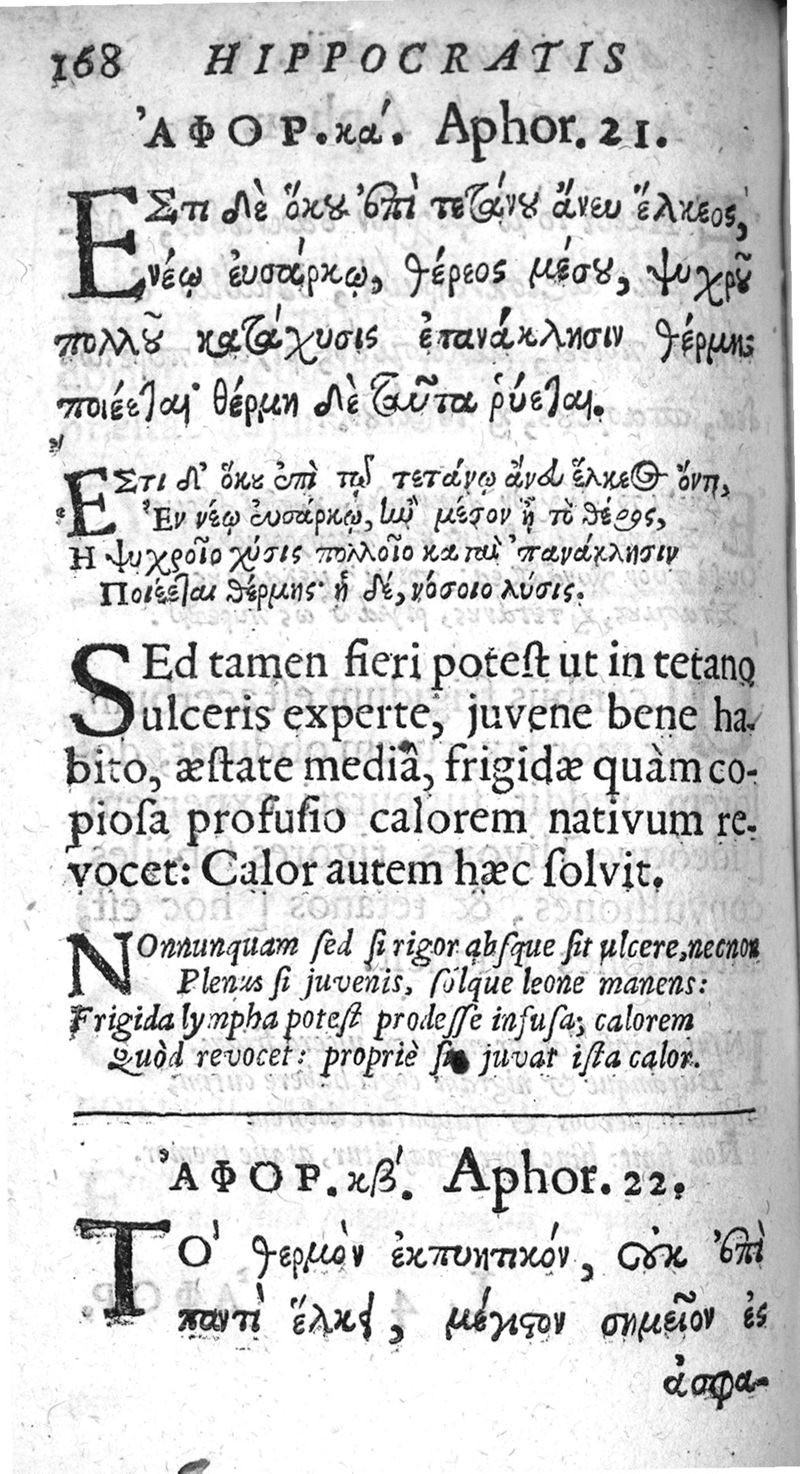 168 HIPPOCRATIS
ἈΦΟΡ. κά. Aphor. 21.
ΕΣτι δὲ ὅκου ἐπὶ τετάνου ἄνευ ἕλκεος,
νέῳ εὐσάρκῳ, θέρεος μέσου, ψυχροῦ
πολλοῦ κατάχυσις ἐπανάκλησιν θέρμης
ποιέεται· θέρμη δὲ ταῦτα ῥύεται.
ΕΣτι δ' ὅκου ἐπὶ τετάνῳ ἄνευ ἕλκεος ὄντι,
Ἐν νέῳ εὐσάρκῳ, μέσον ἢ τὸ θέρος,
Η ψυχροῖο χύσις πολλοῖο 'πανάκλησιν
Ποιέεται θέρμης· ἡ δέ, νόσοιο λύσις.
SEd tamen fieri poteſt ut in tetano
ulceris experte, juvene bene ha-
bito, æſtate mediâ, frigidæ quàm co-
pioſa profuſio calorem nativum re-
vocet: Calor autem hæc ſolvit.
NOnnunquam ſed ſi rigor abſque ſit ulcere, necnon
Plenus ſi juvenis, ſolque leone manens:
Frigida lympha poteſt prodeſſe infuſa; calorem
Quòd revocet: propriè juvat iſta calor.
ἈΦΟΡ. κβ́. Aphor. 22.
ΤῸ θερμὸν ἐκπυητικόν, οὐκ ἐπὶ
παντὶ ἕλκει, μέγιστον σημεῖον ἐς
ἀσφα-